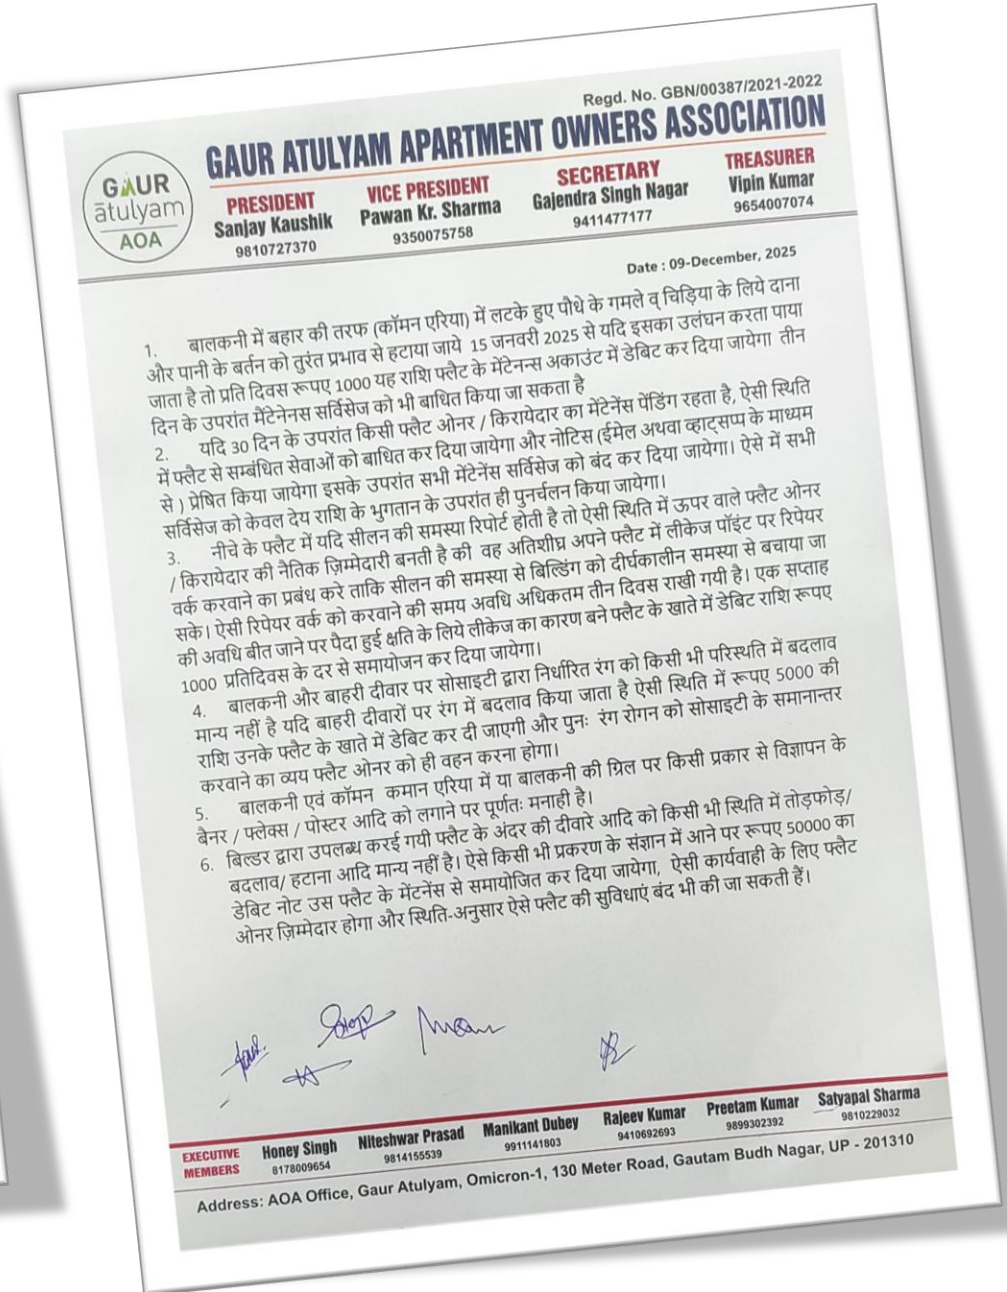 Regd. No. GBN/00387/2021-2022
GAUR ATULYAM APARTMENT OWNERS ASSOCIATION
GAUR
ātulyam
AOA
PRESIDENT
Sanjay Kaushik
9810727370
VICE PRESIDENT
Pawan Kr. Sharma
9350075758
SECRETARY
Gajendra Singh Nagar
9411477177
TREASURER
Vipin Kumar
9654007074
Date : 09-December, 2025
1. बालकनी में बहार की तरफ (कॉमन एरिया) में लटके हुए पौधे के गमले व् चिड़िया के लिये दाना
और पानी के बर्तन को तुरंत प्रभाव से हटाया जाये 15 जनवरी 2025 से यदि इसका उलंघन करता पाया
जाता है तो प्रति दिवस रूपए 1000 यह राशि फ्लैट के मेंटेनन्स अकाउंट में डेबिट कर दिया जायेगा तीन
दिन के उपरांत मैंटेनेनस सर्विसेज को भी बाधित किया जा सकता है
2. यदि 30 दिन के उपरांत किसी फ्लैट ओनर / किरायेदार का मेंटेनेंस पेंडिंग रहता है, ऐसी स्थिति
में फ्लैट से सम्बंधित सेवाओं को बाधित कर दिया जायेगा और नोटिस (ईमेल अथवा व्हाट्सप्प के माध्यम
से ) प्रेषित किया जायेगा इसके उपरांत सभी मेंटेनेंस सर्विसेज को बंद कर दिया जायेगा। ऐसे में सभी
सर्विसेज को केवल देय राशि के भुगतान के उपरांत ही पुनर्चलन किया जायेगा।
3. नीचे के फ्लैट में यदि सीलन की समस्या रिपोर्ट होती है तो ऐसी स्थिति में ऊपर वाले फ्लैट ओनर
/ किरायेदार की नैतिक ज़िम्मेदारी बनती है की वह अतिशीघ्र अपने फ्लैट में लीकेज पॉइंट पर रिपेयर
वर्क करवाने का प्रबंध करे ताकि सीलन की समस्या से बिल्डिंग को दीर्घकालीन समस्या से बचाया जा
सके। ऐसी रिपेयर वर्क को करवाने की समय अवधि अधिकतम तीन दिवस राखी गयी है। एक सप्ताह
की अवधि बीत जाने पर पैदा हुई क्षति के लिये लीकेज का कारण बने फ्लैट के खाते में डेबिट राशि रूपए
1000 प्रतिदिवस के दर से समायोजन कर दिया जायेगा।
4. बालकनी और बाहरी दीवार पर सोसाइटी द्वारा निर्धारित रंग को किसी भी परिस्थति में बदलाव
मान्य नहीं है यदि बाहरी दीवारों पर रंग में बदलाव किया जाता है ऐसी स्थिति में रूपए 5000 की
राशि उनके फ्लैट के खाते में डेबिट कर दी जाएगी और पुनः रंग रोगन को सोसाइटी के समानान्तर
करवाने का व्यय फ्लैट ओनर को ही वहन करना होगा।
5. बालकनी एवं कॉमन कमान एरिया में या बालकनी की ग्रिल पर किसी प्रकार से विज्ञापन के
बैनर / फ्लेक्स / पोस्टर आदि को लगाने पर पूर्णतः मनाही है।
6. बिल्डर द्वारा उपलब्ध करई गयी फ्लैट के अंदर की दीवारे आदि को किसी भी स्थिति में तोड़फोड़/
बदलाव/ हटाना आदि मान्य नहीं है। ऐसे किसी भी प्रकरण के संज्ञान में आने पर रूपए 50000 का
डेबिट नोट उस फ्लैट के मेंटनेंस से समायोजित कर दिया जायेगा, ऐसी कार्यवाही के लिए फ्लैट
ओनर ज़िम्मेदार होगा और स्थिति-अनुसार ऐसे फ्लैट की सुविधाएं बंद भी की जा सकती हैं।
EXECUTIVE
MEMBERS
Honey Singh
8178009654
Niteshwar Prasad
9814155539
Manikant Dubey
9911141803
Rajeev Kumar
9410692693
Preetam Kumar
9899302392
Satyapal Sharma
9810229032
Address: AOA Office, Gaur Atulyam, Omicron-1, 130 Meter Road, Gautam Budh Nagar, UP - 201310